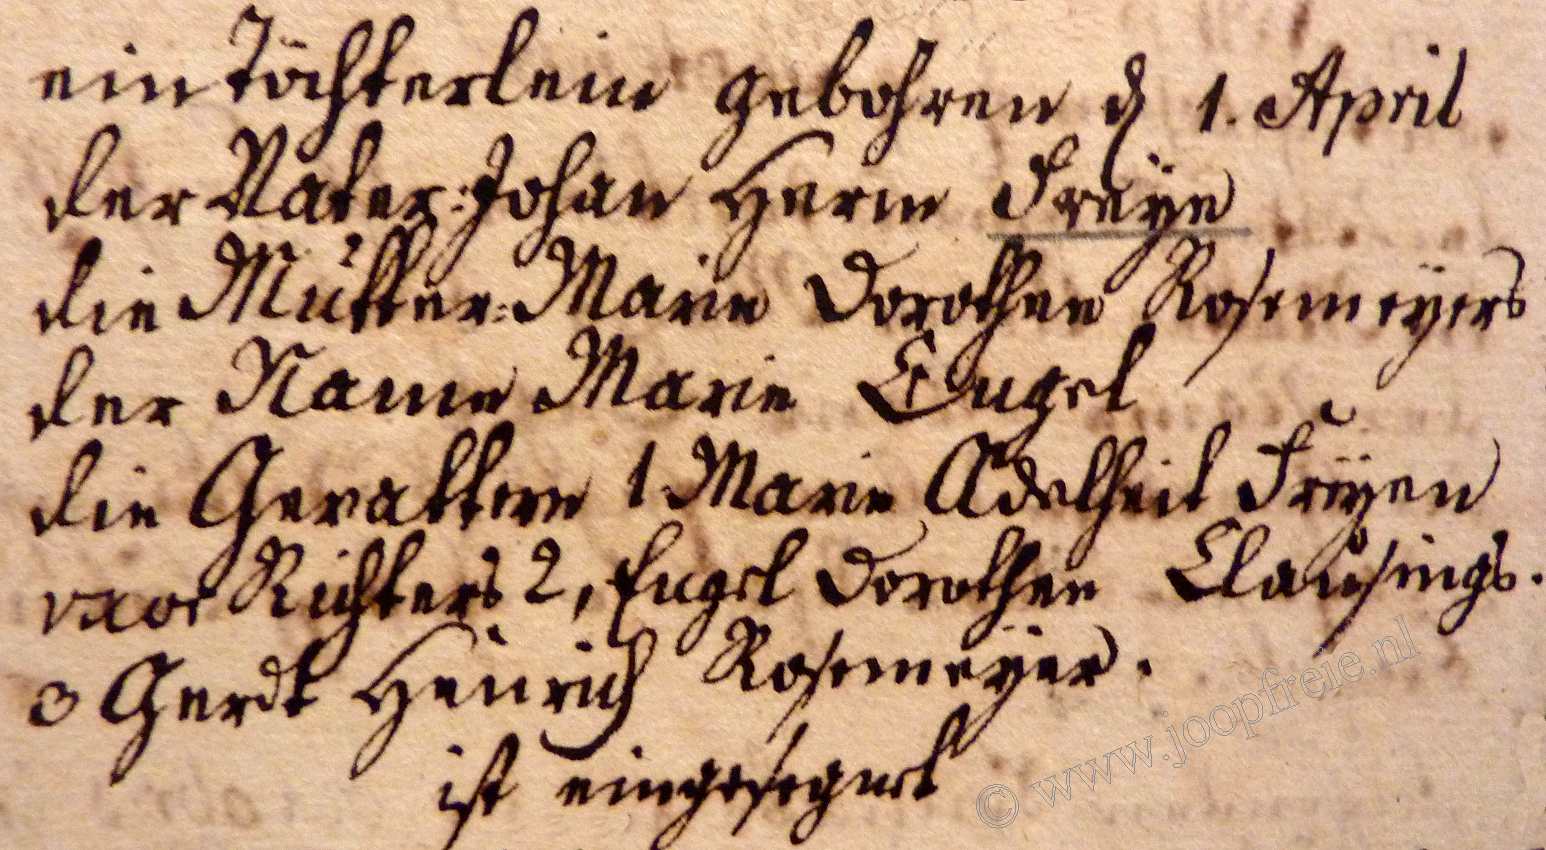 ein Töchterlein gebohren d 1. April
der Vater: Johan Herm Freÿe
die Mutter: Marie Dorothee Rosemeÿers
der Name Marie Engel
die Gevattern 1 Marie Adelheit Freÿen
uxor Richters 2, Engel Dorothee Clausings.
3 Gerdt Henrich Rosemeÿer.
ist eingesegnet
© www.joopfreie.nl